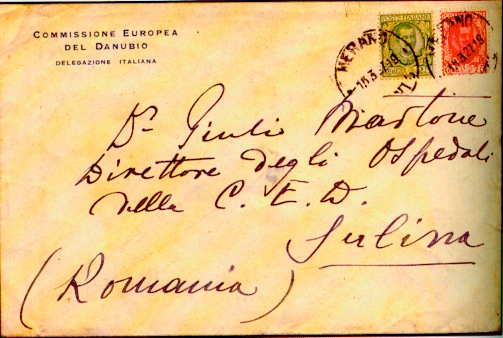 COMMISSIONE EUROPEA
DEL DANUBIO
DELEGAZIONE ITALIANA
POSTE ITALIANE
MERANO
Dr Giuli Martone
Direttore degli Ospedali
della C. E. D.
Sulina
(Romania)